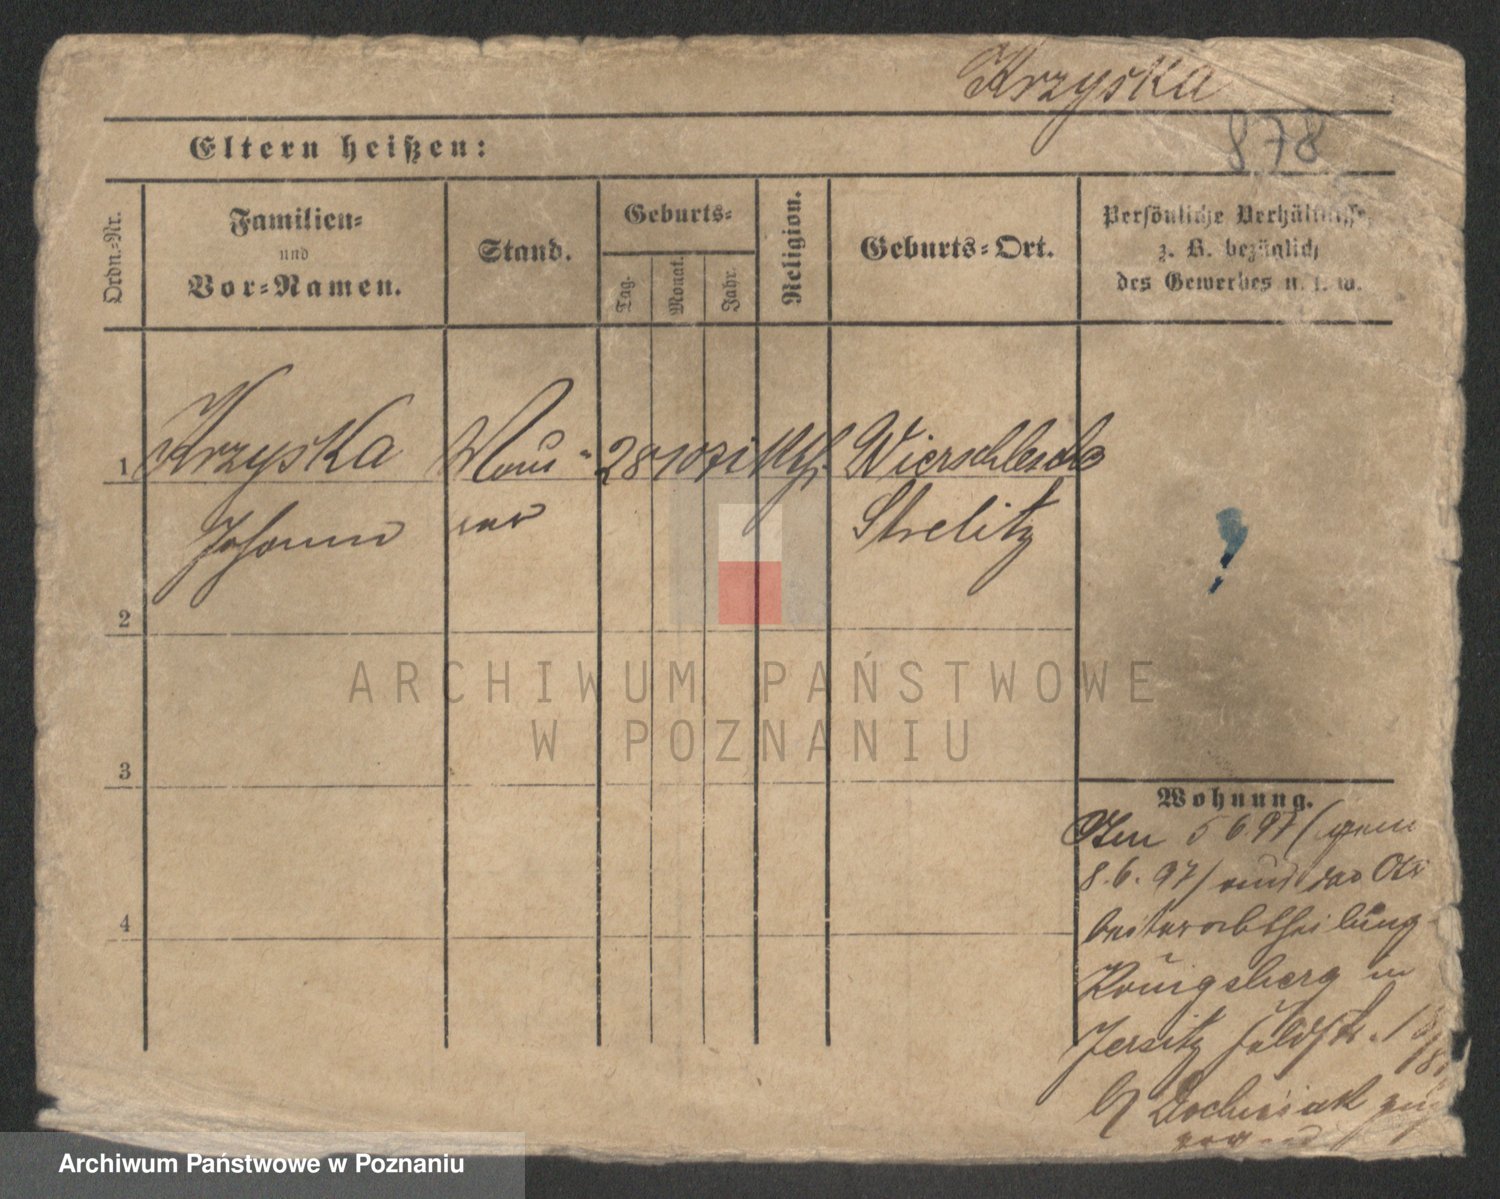 Krzyska
878
Eltern heißen:
Ordn.-Nr.
Familien-
und
Vor-Namen.
Stand.
Geburts-
Tag.
Monat.
Jahr.
Religion.
Geburts-Ort.
Persönliche Verhältnisse,
z. B. bezüglich
des Gewerbes u. s. w.
1 Krzyska Mau- 28 10 71 kth.
Johann rer Strelitz
2
ARCHIWUM PAŃSTWOWE
W POZNANIU
3
Wohnung.
5 6 97 (gem
8. 6. 97)
4
beiterabtheilung
Königsberg in
Jersitz Feldstr. 18
Archiwum Państwowe w Poznaniu